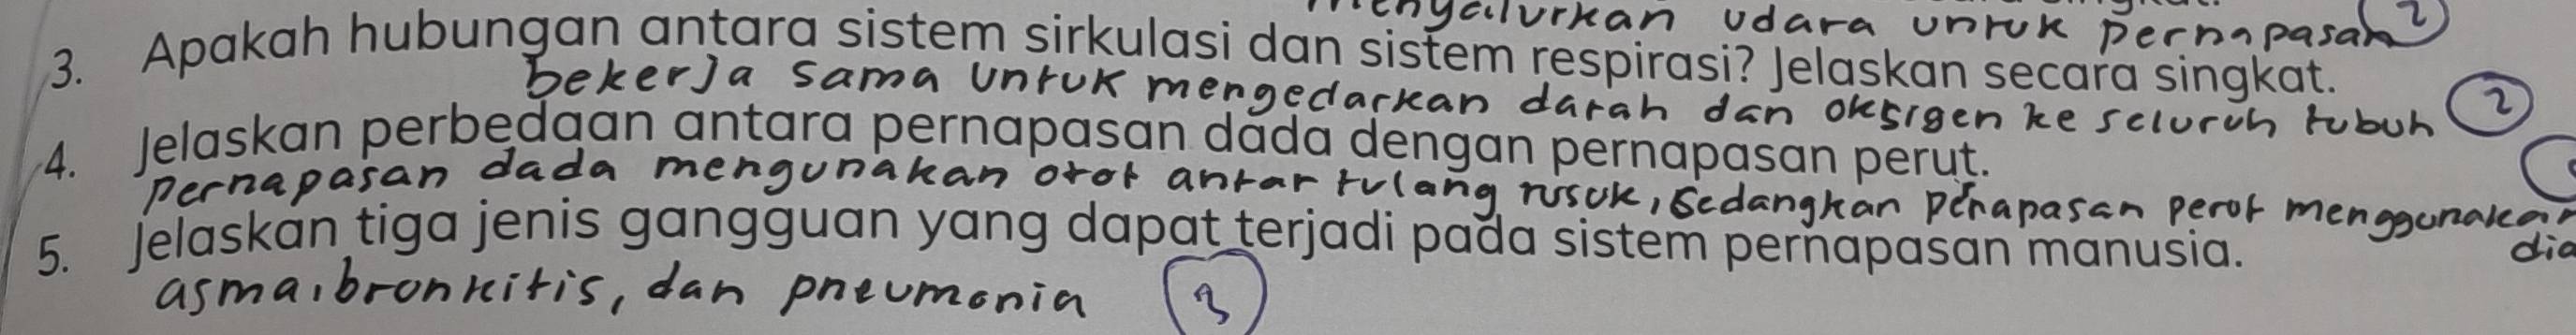 menyalurkan udara untuk pernapasan 2
3. Apakah hubungan antara sistem sirkulasi dan sistem respirasi? Jelaskan secara singkat.
bekerja sama untuk mengedarkan darah dan oksigen ke seluruh tubuh 2
4. Jelaskan perbedaan antara pernapasan dada dengan pernapasan perut.
pernapasan dada mengunakan otot antar tulang rusuk, sedangkan penapasan perot menggunakan
dia
5. Jelaskan tiga jenis gangguan yang dapat terjadi pada sistem pernapasan manusia.
asma, bronkitis, dan pneumonia 3